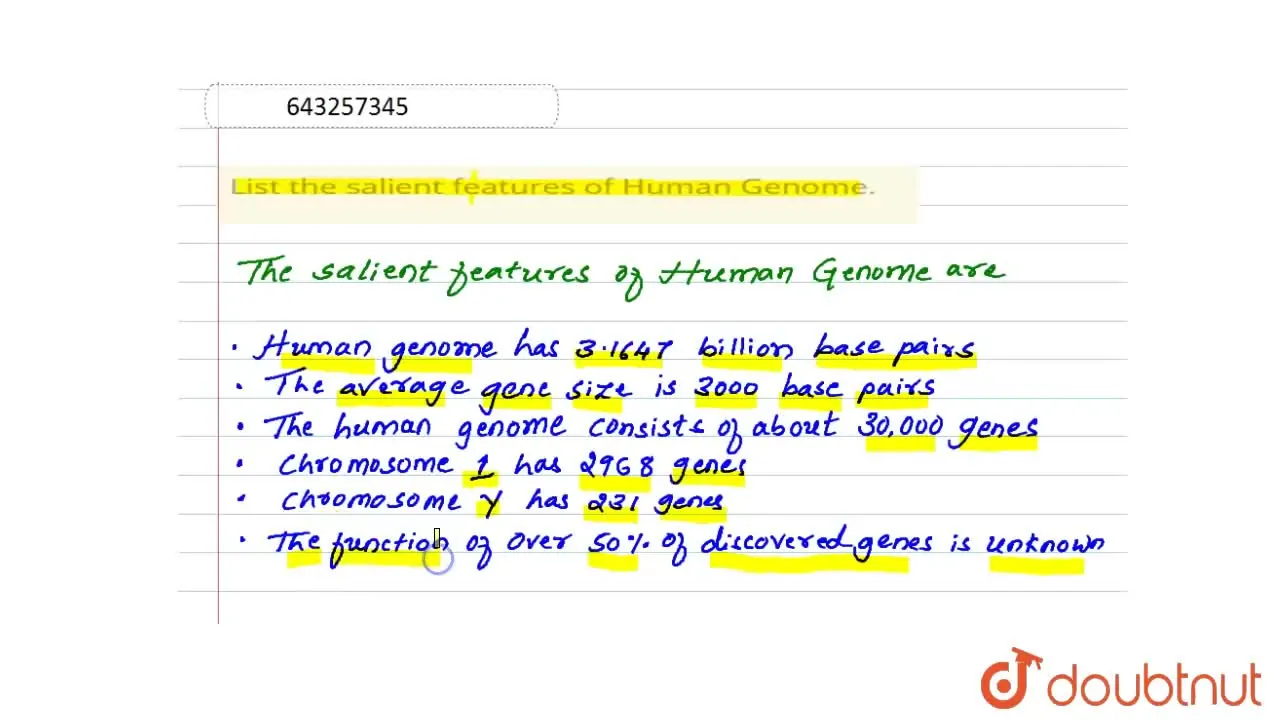 643257345
List the salient features of Human Genome.
The salient features of Human Genome are
· Human genome has 3.1647 billion base pairs
· The average gene size is 3000 base pairs
· The human genome consists of about 30,000 genes
· Chromosome 1 has 2968 genes
· Chromosome Y has 231 genes
· The function of over 50% of discovered genes is unknown
doubtnut